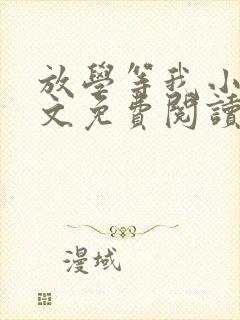 放學等我小
文免費閱讀
漫域